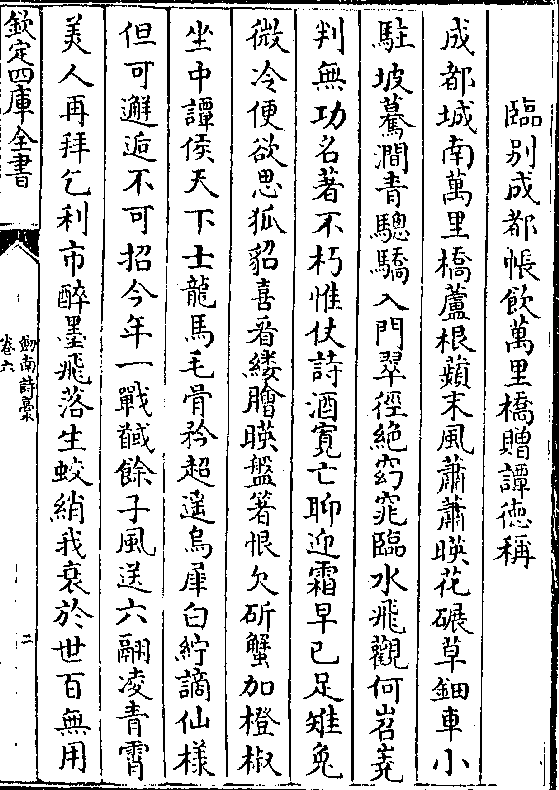 臨別成都帳飲萬里橋贈譚徳稱
成都城南萬里橋蘆根蘋末風蕭蕭暎花碾草鈿車小
駐坡驀澗青驄驕入門翠徑絶窈窕臨水飛觀何岧嶤
判無功名著不朽惟仗詩酒寛亡聊迎霜早已足雉兔
微冷便欲思狐貂喜看縷膾暎盤箸恨欠斫蟹加橙椒
坐中譚侯天下士龍馬毛骨矜超遥烏犀白紵謫仙様
但可邂逅不可招今年一戰馘餘子風送六翮凌青霄
美人再拜乞利市醉墨飛落生蛟綃我衰於世百無用
欽定四庫全書
劒南詩稾
卷六
二